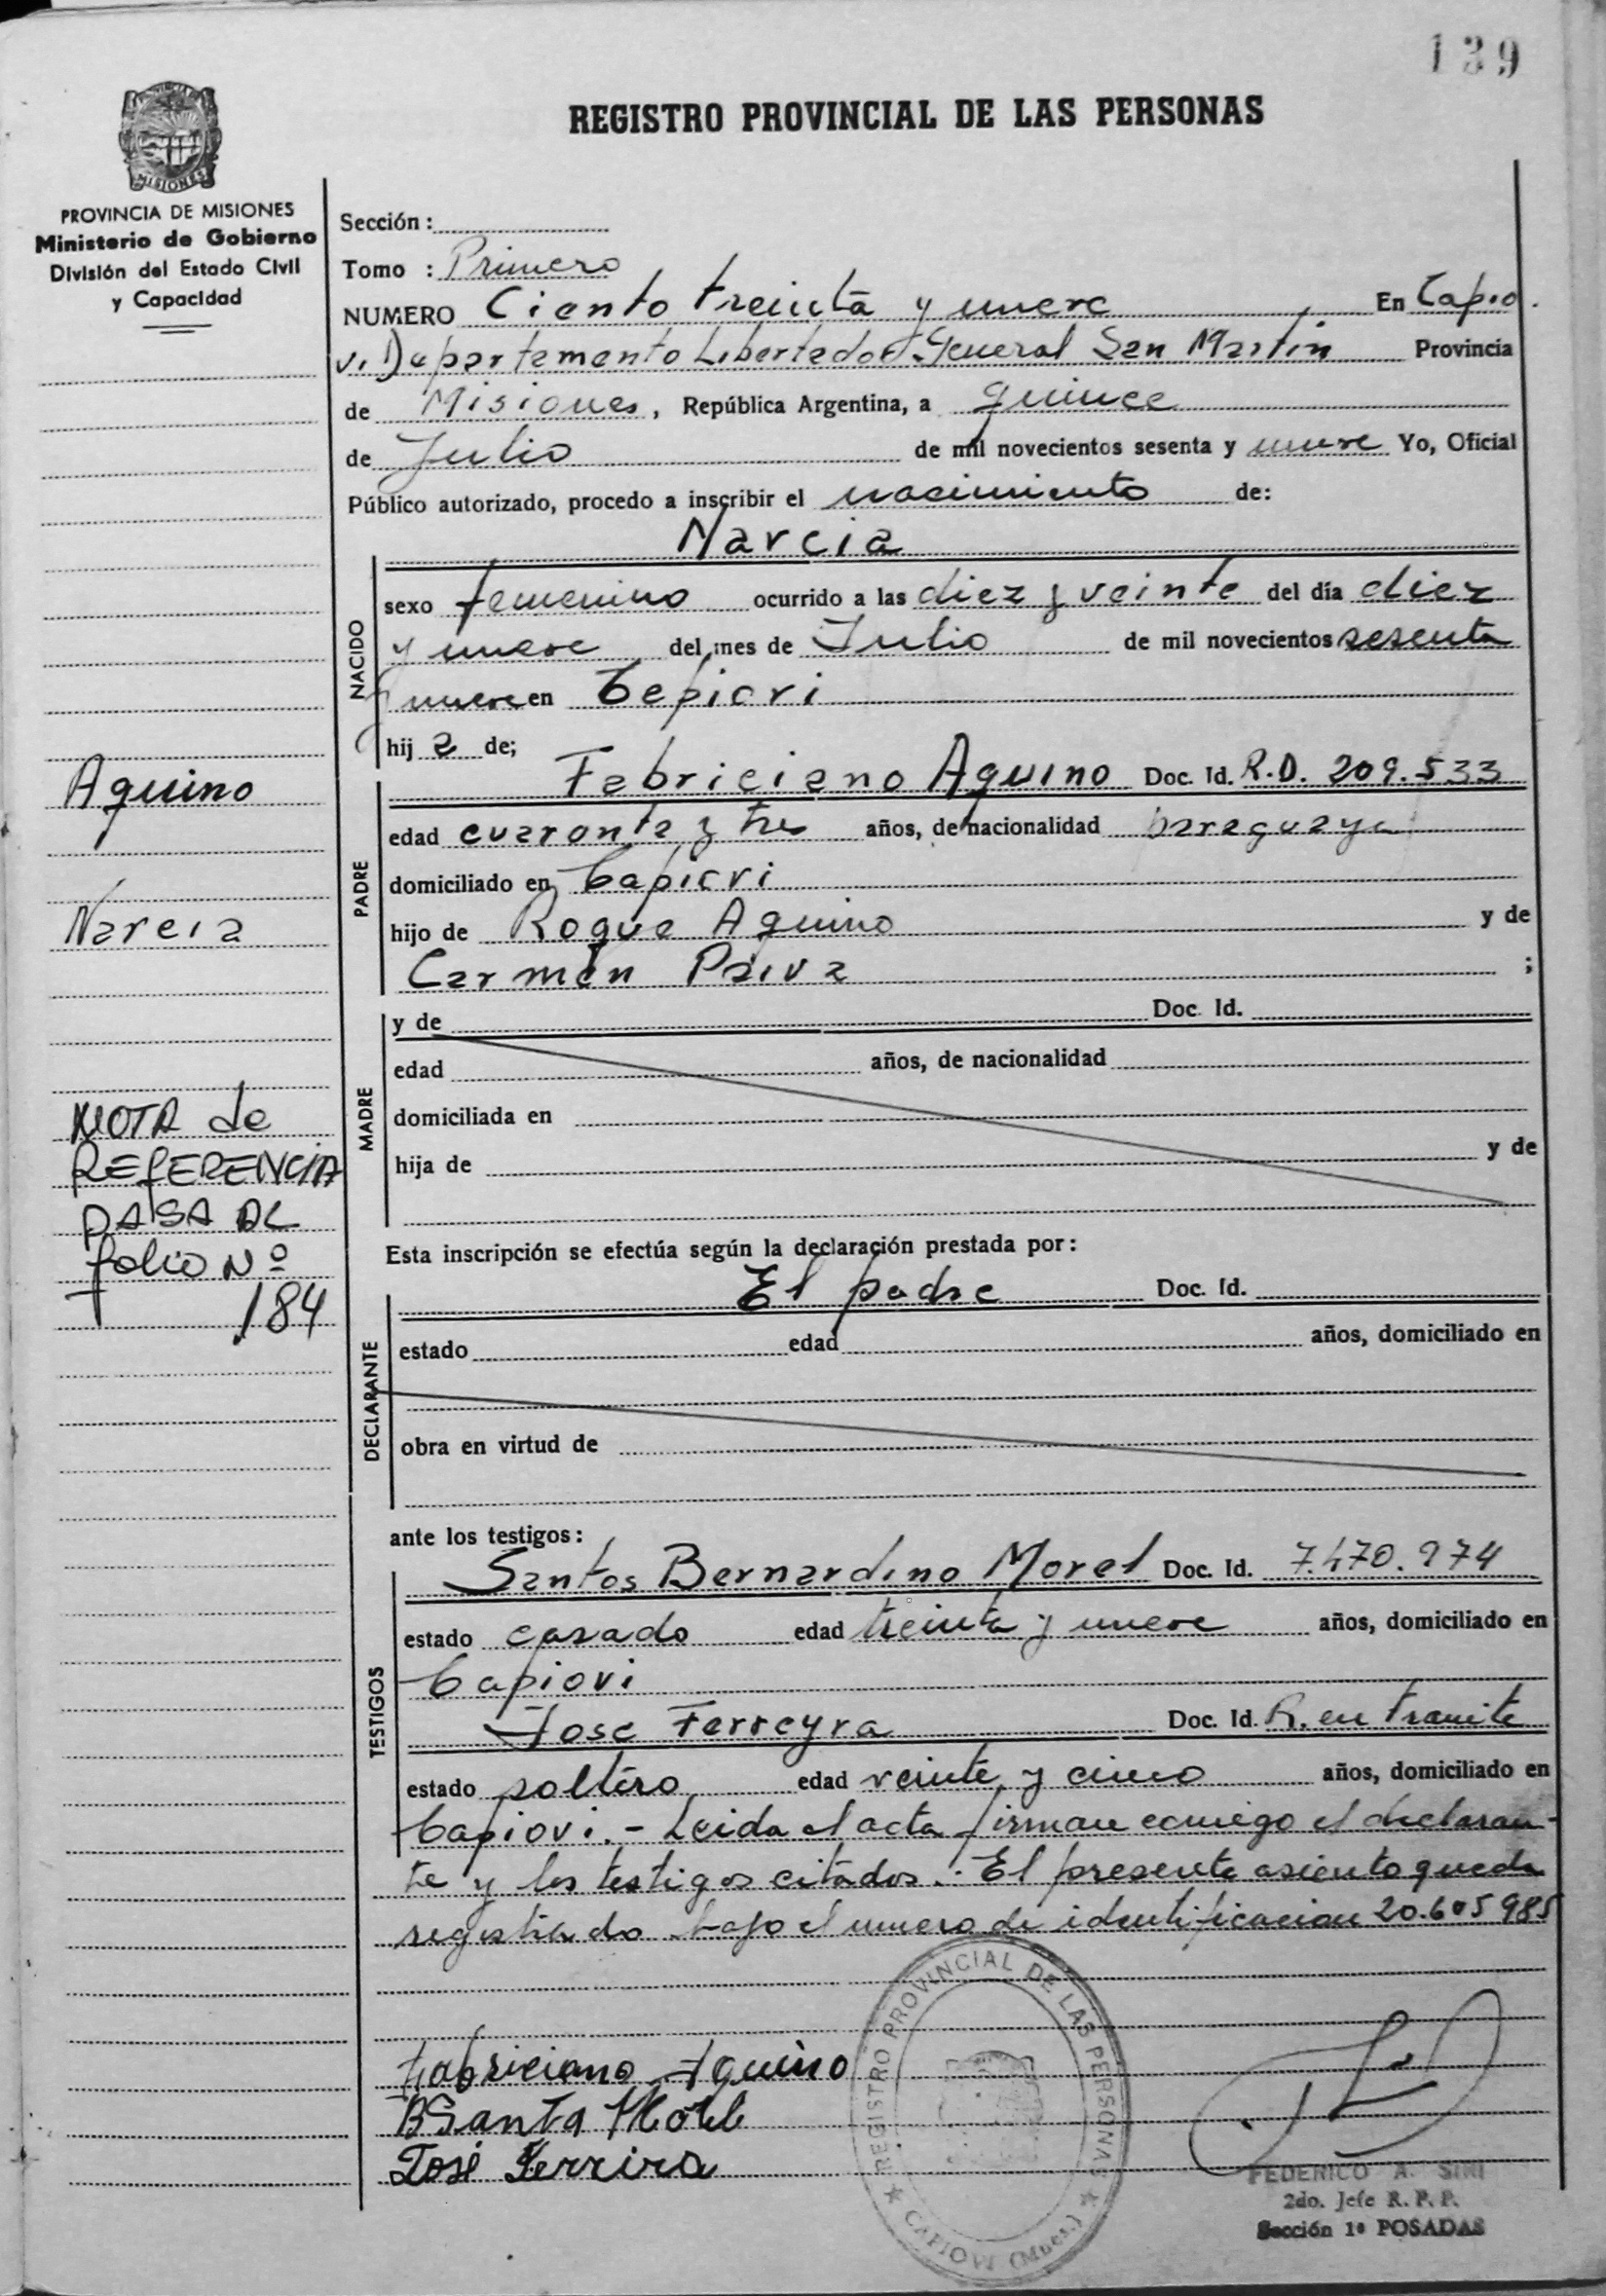 139
REGISTRO PROVINCIAL DE LAS PERSONAS
MISIONES
PROVINCIA DE MISIONES
Ministerio de Gobierno
División del Estado Civil
y Capacidad
Sección :
Tomo : Primero
NUMERO Ciento treinta y nueve En Capio
vi Departamento Libertador General San Martin Provincia
de Misiones, República Argentina, a quince
de Julio de mil novecientos sesenta y nueve Yo, Oficial
Público autorizado, procedo a inscribir el nacimiento de:
Narcia
NACIDO
sexo femenino ocurrido a las diez y veinte del día diez
y nueve del mes de Julio de mil novecientos sesenta
y nueve en Capiovi
hij a de;
Aquino
Narcia
PADRE
Fabriciano Aquino Doc. Id. R.D. 209.533
edad cuaranta y tres años, de nacionalidad paraguaya
domiciliado en Capiovi
hijo de Roque Aquino y de
Carmen Paiva ;
MADRE
y de Doc. Id.
edad años, de nacionalidad
domiciliada en
hija de y de
NOTA de
REFERENCIA
PASA AL
folio Nº
184
Esta inscripción se efectúa según la declaración prestada por:
DECLARANTE
El padre Doc. Id.
estado edad años, domiciliado en
obra en virtud de
ante los testigos:
TESTIGOS
Santos Bernardino Morel Doc. Id. 7.470.974
estado casado edad treinta y nueve años, domiciliado en
Capiovi
Jose Ferreyra Doc. Id. R. en tramite
estado soltero edad veinte y cinco años, domiciliado en
Capiovi.- Leida el acta firman conmigo el declaran-
te y los testigos citados.- El presente asiento queda
registrado bajo el numero de identificacion 20.605985
Fabriciano Aquino
José Ferrira
REGISTRO PROVINCIAL DE LAS PERSONAS
CAPIOVI (Mnes.)
FEDERICO A. SINI
2do. Jefe R. P. P.
Sección 1ª POSADAS